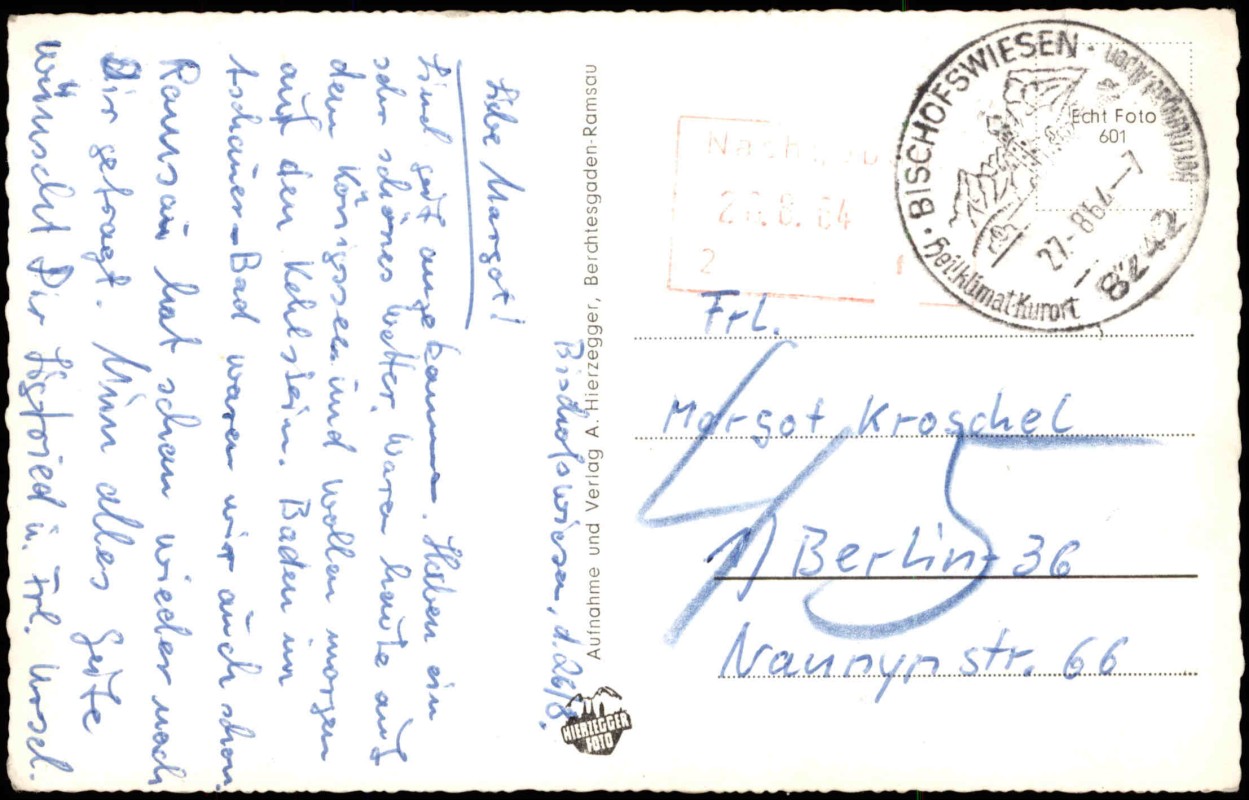 Bischofswiesen, d. 26/8.
Liebe Margot!
Sind gut angekommen. Haben ein
sehr schönes Wetter. Waren heute auf
dem Königssee und wollen morgen
auf den Kehlstein. Baden im
Aschauer-Bad waren wir auch schon.
Ramsau hat schon wieder nach
Dir gefragt. Nun alles Gute
wünscht Dir Sigfried u. Frl. Ursel.
Aufnahme und Verlag A. Hierzegger, Berchtesgaden-Ramsau
HIERZEGGER
FOTO
Echt Foto
601
BISCHOFSWIESEN
Heilklimat. Kurort
27.-8.64--7
8242
27.8.64
2
Frl.
Margot Kroschel
1) Berlin-36
Naunynstr. 66
45